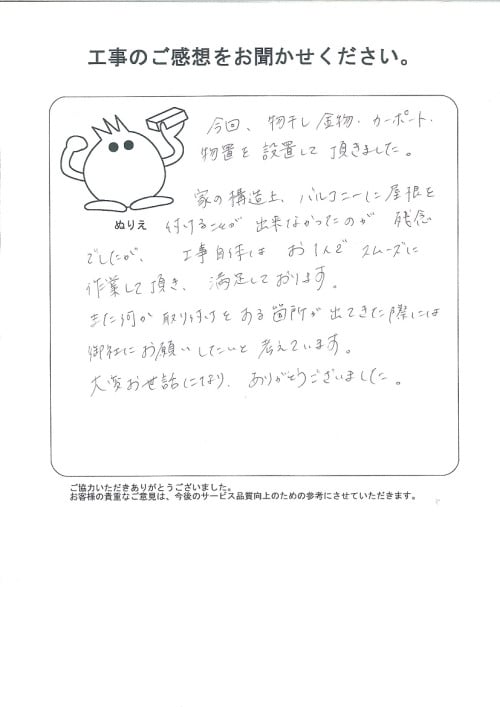 工事のご感想をお聞かせください。
今回、物干し金物・カーポート・
物置を設置して頂きました。
家の構造上、バルコニーに屋根を
ぬりえ
付けることが出来なかったのが残念
でしたが、工事自体はお1人でスムーズに
作業して頂き、満足しております。
また何か取り付けをする箇所が出てきた際には
御社にお願いしたいと考えています。
大変お世話になり、ありがとうございました。
ご協力いただきありがとうございました。
お客様の貴重なご意見は、今後のサービス品質向上のための参考にさせていただきます。